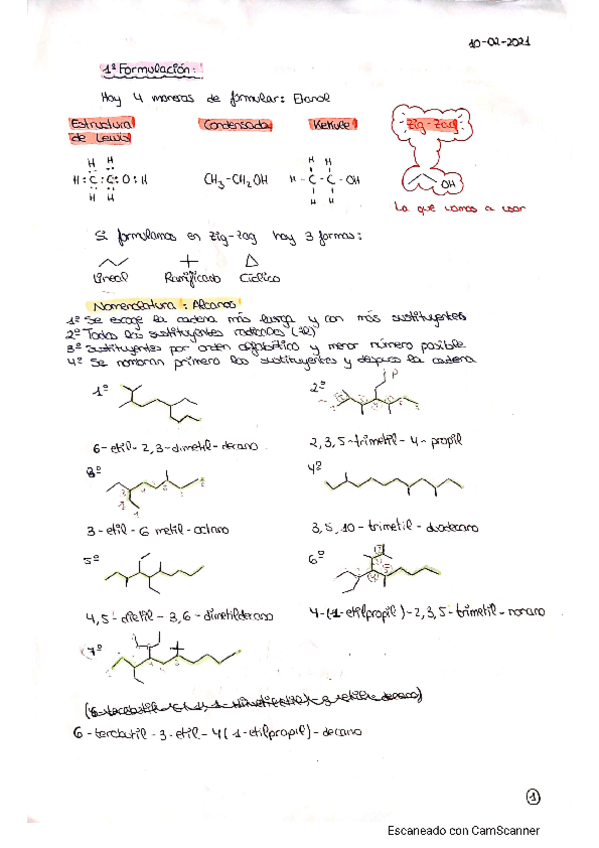 10-02-2021
1º Formulación:
Hay 4 maneras de formular: Etanol
Estructura de Lewis
Condensada
Kekule
Zig-Zag
H H
H : C : C : O : H
H H
CH3-CH2OH
H H
H - C - C - OH
H H
OH
La que vamos a usar
Si formulamos en Zig-Zag hay 3 formas:
Lineal Ramificado Cíclico
Nomenclatura: Alcanos
1º Se escoge la cadena más larga y con más sustituyentes
2º Todos los sustituyentes radicales (il)
3º Sustituyentes por orden alfabético y menor número posible
4º Se nombran primero los sustituyentes y después la cadena
1º
2º
6-etil-2,3-dimetil-decano
2,3,5-trimetil-4-propil
3º
4º
3-etil-6 metil-octano
3,5,10-trimetil-dodecano
5º
6º
4,5-dietil-3,6-dimetildecano
4-(1-etilpropil)-2,3,5-trimetil-nonano
7º
6-tercbutil-3-etil-4(1-etilpropil)-decano
1
Escaneado con CamScanner